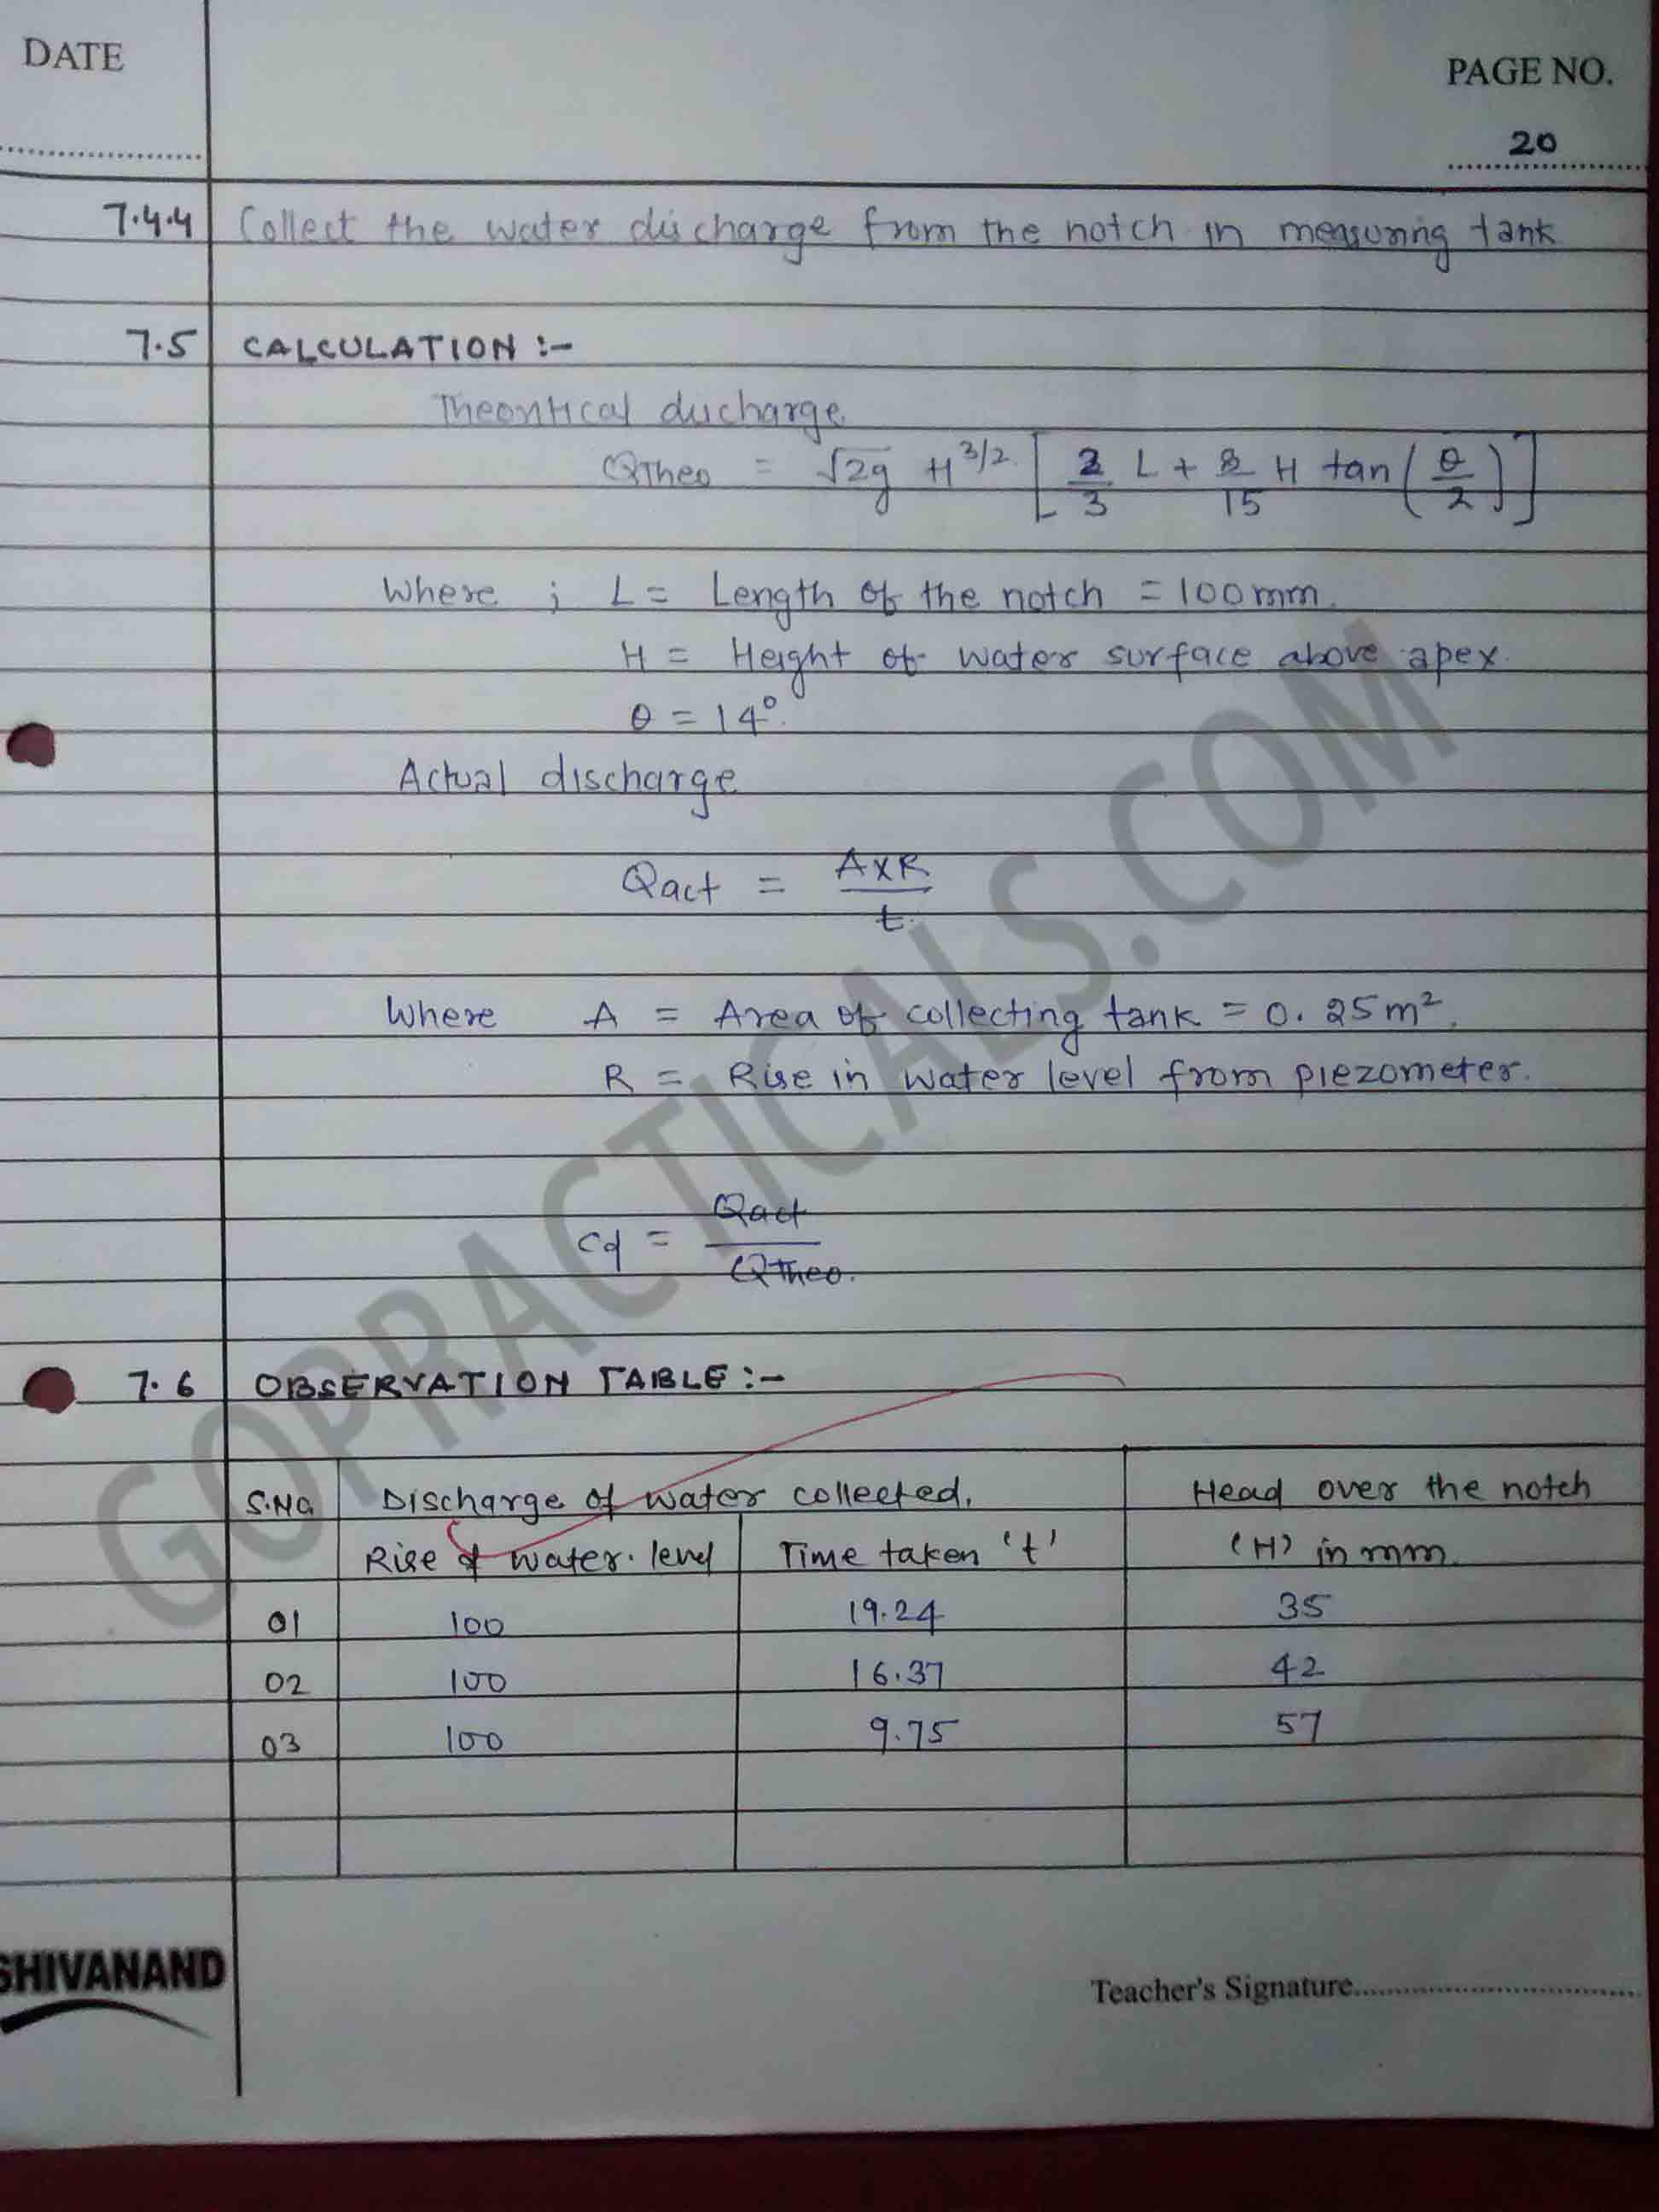 DATE
PAGE NO.
20
7.4.4 Collect the water discharge from the notch in measuring tank
7.5 CALCULATION :-
Theoritical discharge
QTheo = √2g H^3/2 [ 2/3 L + 8/15 H tan (θ/2) ]
Where ; L = Length of the notch = 100mm.
H = Height of water surface above apex.
θ = 14°.
Actual discharge
Qact = A×R / t.
Where A = Area of collecting tank = 0.25m².
R = Rise in water level from piezometer.
Cd = Qact / QTheo.
7.6 OBSERVATION TABLE :-
S.No. Discharge of water collected. Head over the notch
Rise of water level Time taken 't' (H) in mm.
01 100 19.24 35
02 100 16.37 42
03 100 9.75 57
SHIVANAND
Teacher's Signature
GOPRACTICALS.COM